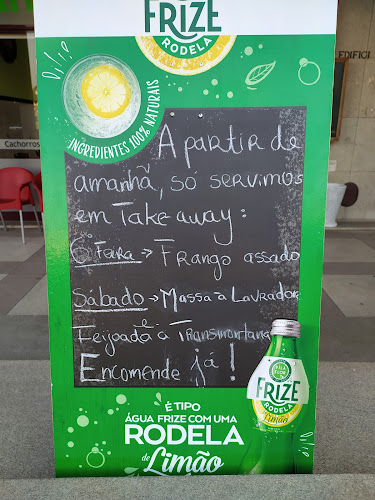 FRIZE
RODELA
INGREDIENTES 100% NATURAIS
A partir de
amanhã, só servimos
em Take away:
6ª Feira -> Frango assado
Sábado -> Massa à Lavrador
e
Feijoada à Transmontana
Encomende já!
FRIZE
RODELA
Limão
É TIPO
ÁGUA FRIZE COM UMA
RODELA
de Limão
Cachorros
EDIFICI